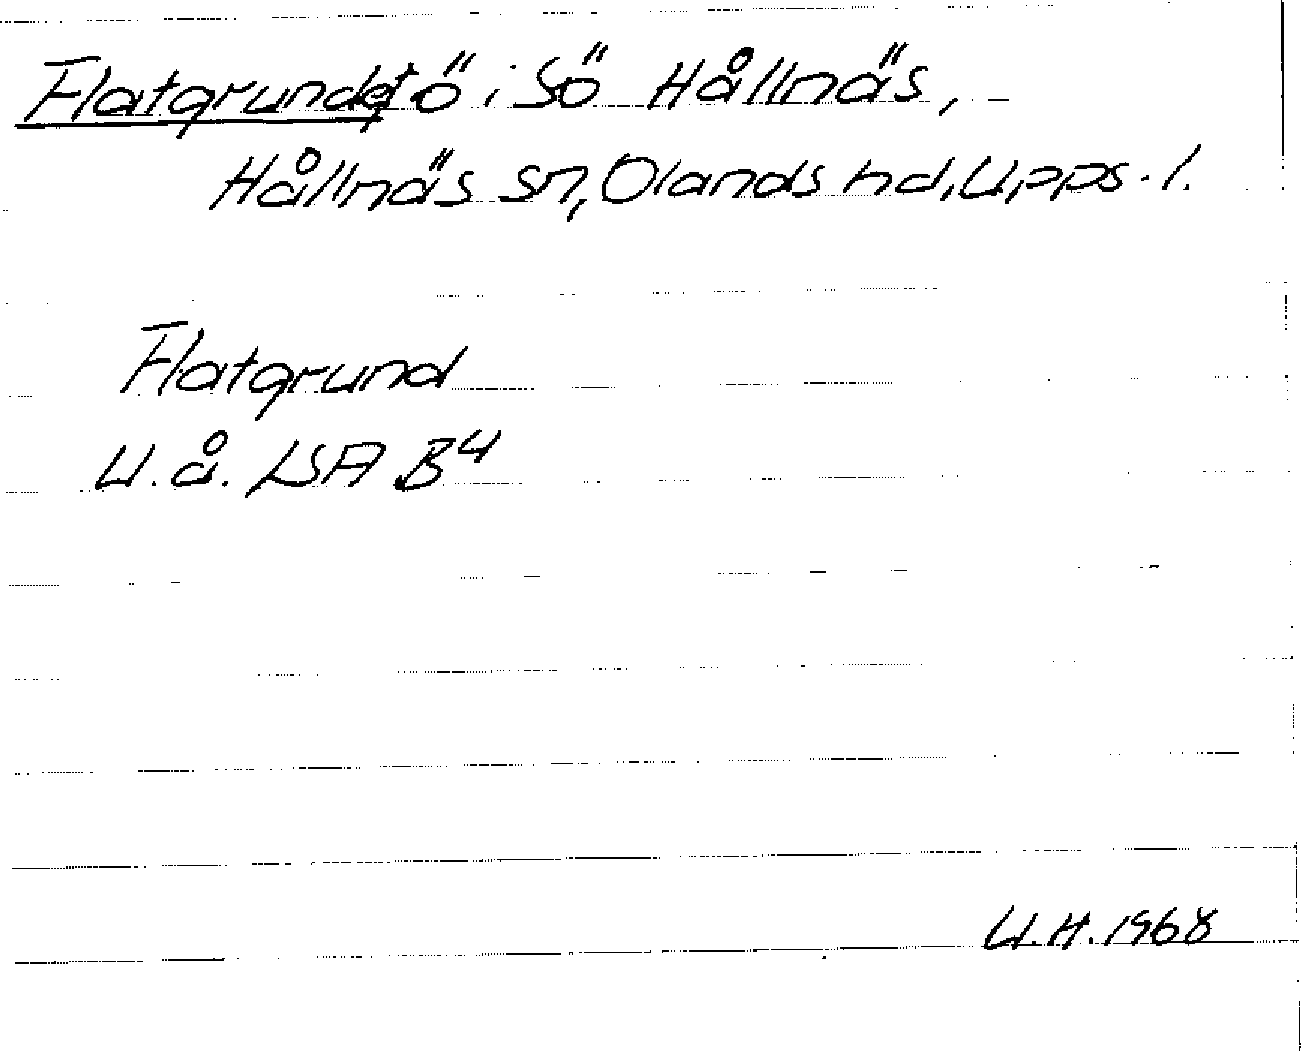 Flatgrundet ö i Sö Hållnäs,
Hållnäs sn, Olands hd, Upps. l.
Flatgrund
U.å. LSA B4
U.H. 1968